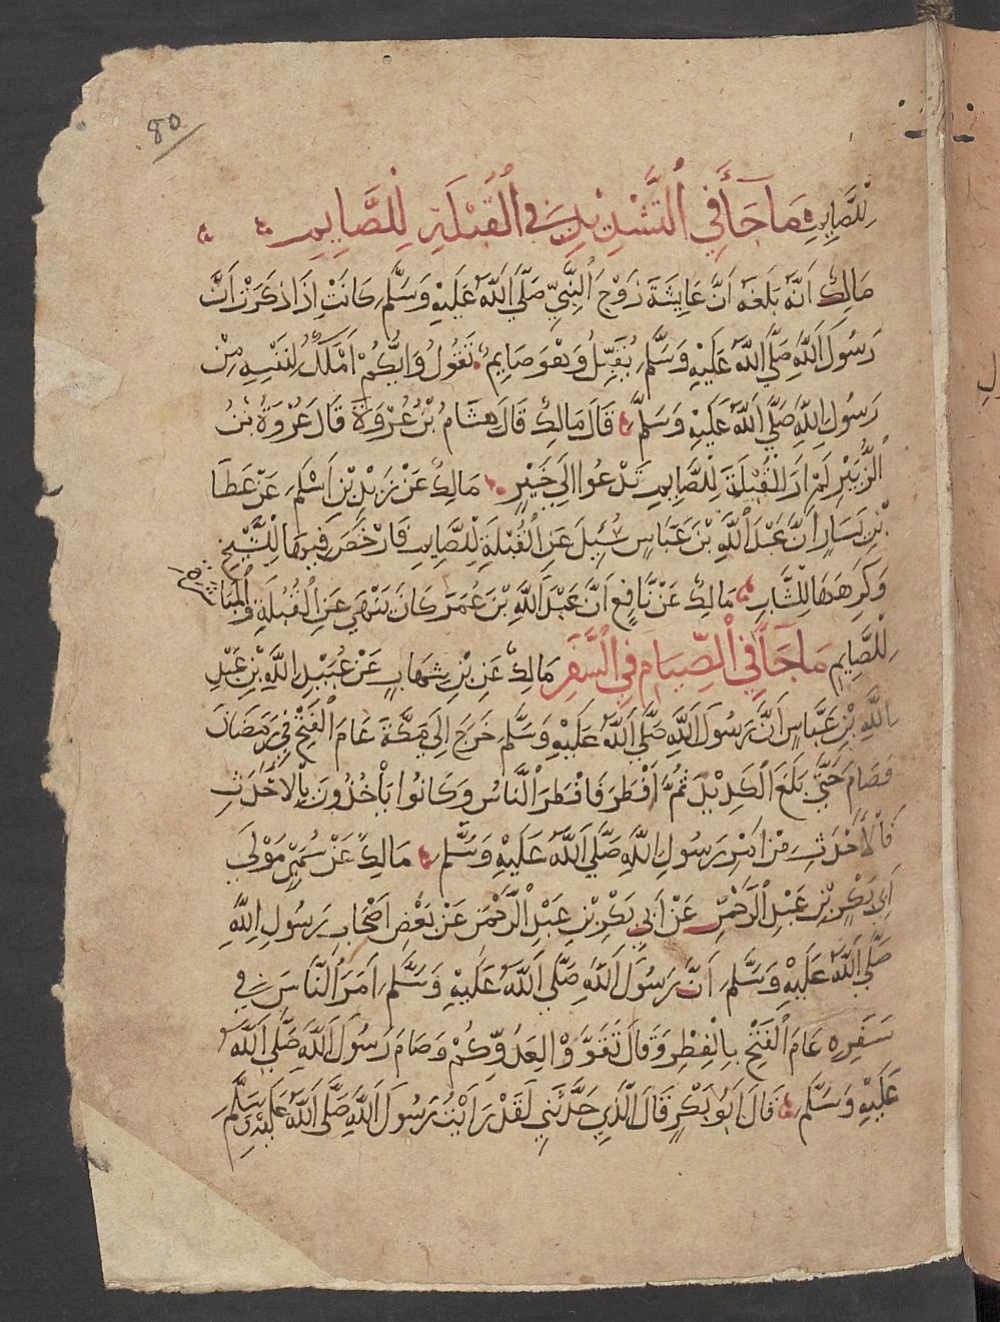 80
لِلصَّايِمِ مَا جَآءَ فِي ٱلتَّشْدِيدِ فِي ٱلْقُبْلَةِ لِلصَّايِمِ
مَالِكٌ اَنَّهُ بَلَغَهُ اَنَّ عَايِشَةَ زَوْجَ ٱلنَّبِيِّ صَلَّي ٱللَّهُ عَلَيْهِ وَسَلَّمَ كَانَتْ اِذَا ذَكَرَتْ اَنَّ
رَسُولَ ٱللَّهِ صَلَّي ٱللَّهُ عَلَيْهِ وَسَلَّمَ يُقَبِّلُ وَهُوَ صَايِمٌ تَقُولُ وَاَيُّكُمْ اَمْلَكُ لِنَفْسِهِ مِنْ
رَسُولِ ٱللَّهِ صَلَّي ٱللَّهُ عَلَيْهِ وَسَلَّمَ قَالَ مَالِكٌ قَالَ هِشَامُ بْنُ عُرْوَةَ قَالَ عُرْوَةُ بْنُ
ٱلزُّبَيْرِ لَمْ اَرَ ٱلْقُبْلَةَ لِلصَّايِمِ تَدْعُوا اِلَي خَيْرٍ مَالِكٌ عَنْ زَيْدِ بْنِ اَسْلَمَ عَنْ عَطَا
بْنِ يَسَارٍ اَنَّ عَبْدَ ٱللَّهِ بْنَ عَبَّاسٍ سُئِلَ عَنِ ٱلْقُبْلَةِ لِلصَّايِمِ فَارْخَصَ فِيهَا لِلشَّيْخِ
وَكَرِهَهَا لِلشَّابِّ مَالِكٌ عَنْ نَّافِعٍ اَنَّ عَبْدَ ٱللَّهِ بْنَ عُمَرَ كَانَ يَنْهَي عَنِ ٱلْقُبْلَةِ وَٱلْمُبَاشَرَةِ
لِلصَّايِمِ مَا جَآءَ فِي ٱلصِّيَامِ فِي ٱلسَّفَرِ مَالِكٌ عَنِ بْنِ شِهَابٍ عَنْ عُبَيْدِ ٱللَّهِ بْنِ عَبْدِ
ٱللَّهِ بْنِ عَبَّاسٍ اَنَّ رَسُولَ ٱللَّهِ صَلَّي ٱللَّهُ عَلَيْهِ وَسَلَّمَ خَرَجَ اِلَي مَكَّةَ عَامَ ٱلْفَتْحِ فِي رَمَضَانَ
فَصَامَ حَتَّي بَلَغَ ٱلْكَدِيدَ ثُمَّ اَفْطَرَ فَافْطَرَ ٱلنَّاسُ وَكَانُوا يَأْخُذُونَ بِٱلْاَحْدَثِ
فَٱلْاَحْدَثِ مِنْ اَمْرِ رَسُولِ ٱللَّهِ صَلَّي ٱللَّهُ عَلَيْهِ وَسَلَّمَ مَالِكٌ عَنْ سُمَيٍّ مَوْلَي
اَبِي بَكْرِ بْنِ عَبْدِ ٱلرَّحْمَنِ عَنْ اَبِي بَكْرِ بْنِ عَبْدِ ٱلرَّحْمَنِ عَنْ بَعْضِ اَصْحَابِ رَسُولِ ٱللَّهِ
صَلَّي ٱللَّهُ عَلَيْهِ وَسَلَّمَ اَنَّ رَسُولَ ٱللَّهِ صَلَّي ٱللَّهُ عَلَيْهِ وَسَلَّمَ اَمَرَ ٱلنَّاسَ فِي
سَفَرِهِ عَامَ ٱلْفَتْحِ بِٱلْفِطْرِ وَقَالَ تَقَوَّوْا لِعَدُوِّكُمْ وَصَامَ رَسُولُ ٱللَّهِ صَلَّي ٱللَّهُ
عَلَيْهِ وَسَلَّمَ قَالَ اَبُو بَكْرٍ قَالَ ٱلَّذِي حَدَّثَنِي لَقَدْ رَاَيْتُ رَسُولَ ٱللَّهِ صَلَّي ٱللَّهُ عَلَيْهِ وَسَلَّمَ